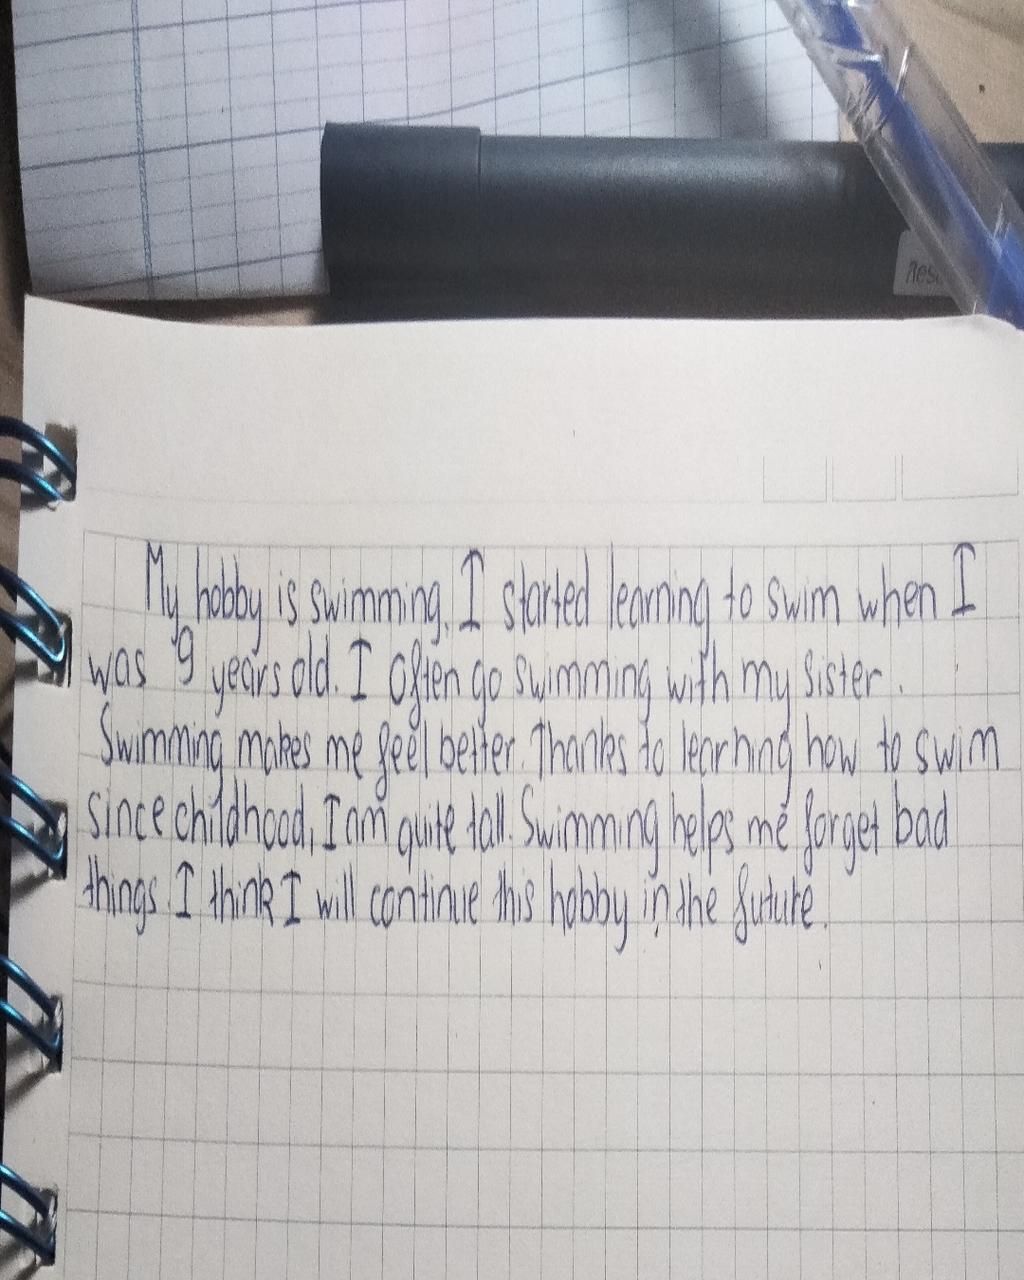 Res
My hobby is swimming. I started learning to swim when I
was 9 years old. I often go swimming with my sister.
Swimming makes me feel better. Thanks to learning how to swim
since childhood, I am quite tall. Swimming helps me forget bad
things. I think I will continue this hobby in the future.